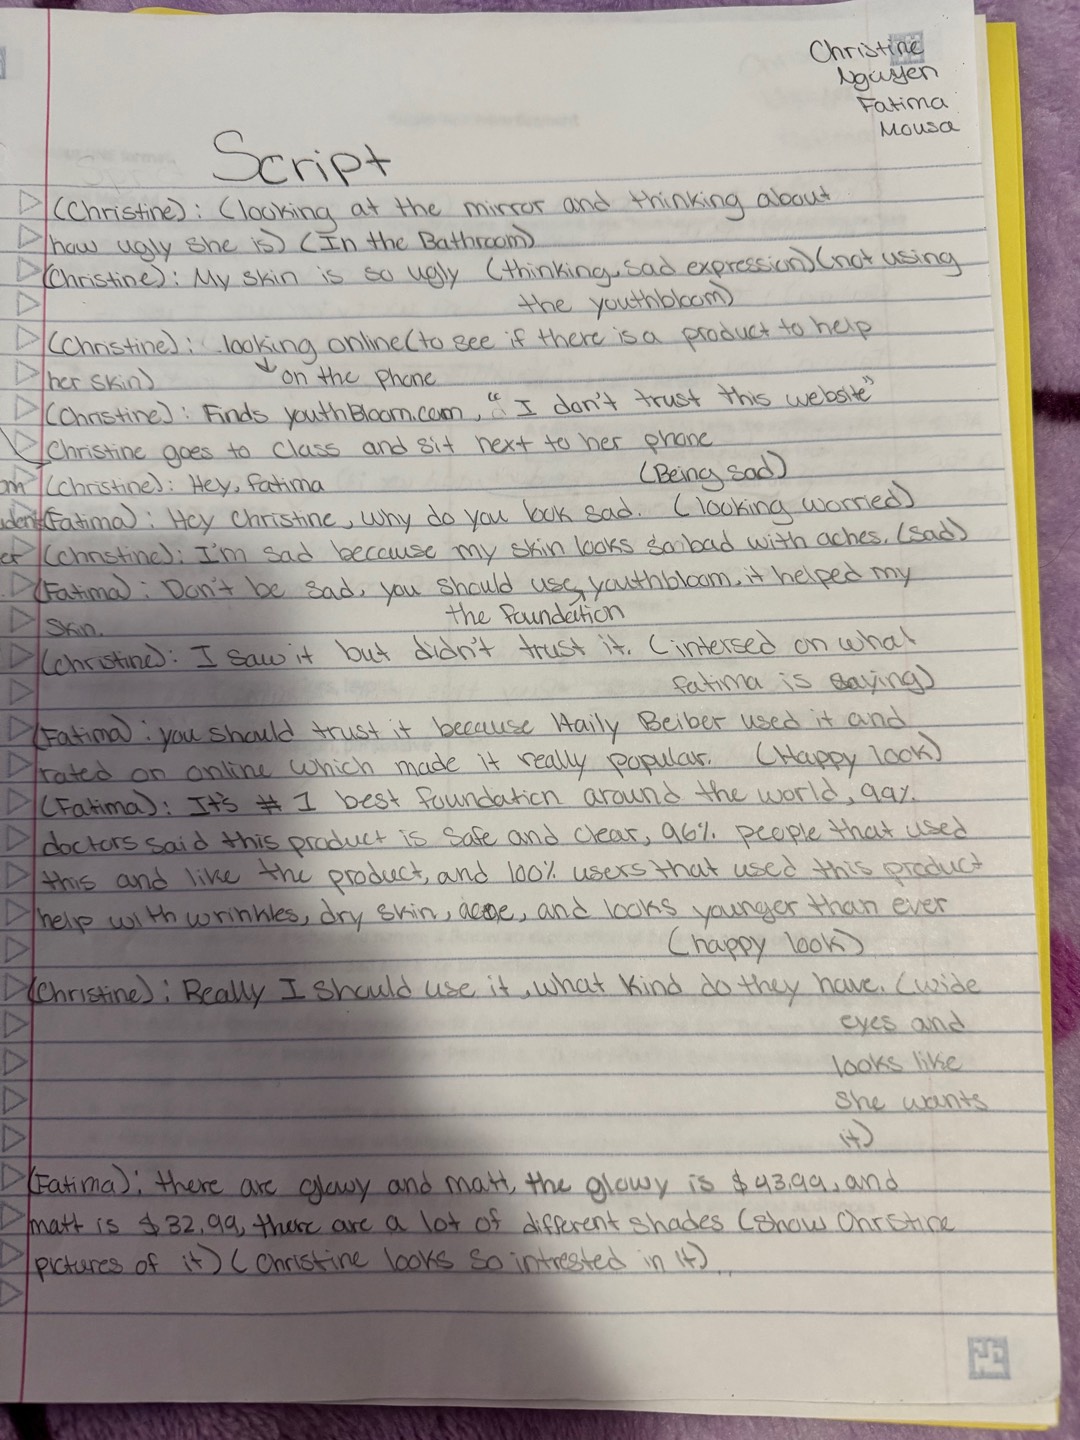 Christine
Nguyen
Fatima
Mousa
Script
(Christine): (looking at the mirror and thinking about
how ugly she is) (In the Bathroom)
(Christine): My skin is so ugly (thinking, sad expression) (not using
the youthbloom)
(Christine): looking online (to see if there is a product to help
her skin) on the phone
(Christine): Finds youthBloom.com, "I don't trust this website"
Christine goes to class and sit next to her phone
(Being sad)
(Christine): Hey, Fatima
(Fatima): Hey Christine, why do you look sad. (looking worried)
(Christine): I'm sad because my skin looks so bad with aches. (sad)
(Fatima): Don't be sad, you should use youthbloom, it helped my
the foundation
skin.
(Christine): I saw it but didn't trust it. (intersed on what
fatima is saying)
(Fatima): you should trust it because Haily Beiber used it and
rated on online which made it really popular. (Happy look)
(Fatima): It's # 1 best foundation around the world, 99%
doctors said this product is safe and clear, 96% people that used
this and like the product, and 100% users that used this product
help with wrinkles, dry skin, acne, and looks younger than ever
(happy look)
(Christine): Really I should use it, what kind do they have. (wide
eyes and
looks like
she wants
it)
(Fatima): there are glowy and matt, the glowy is $43.99, and
matt is $32.99, there are a lot of different shades (show Christine
pictures of it) (Christine looks so intrested in it)